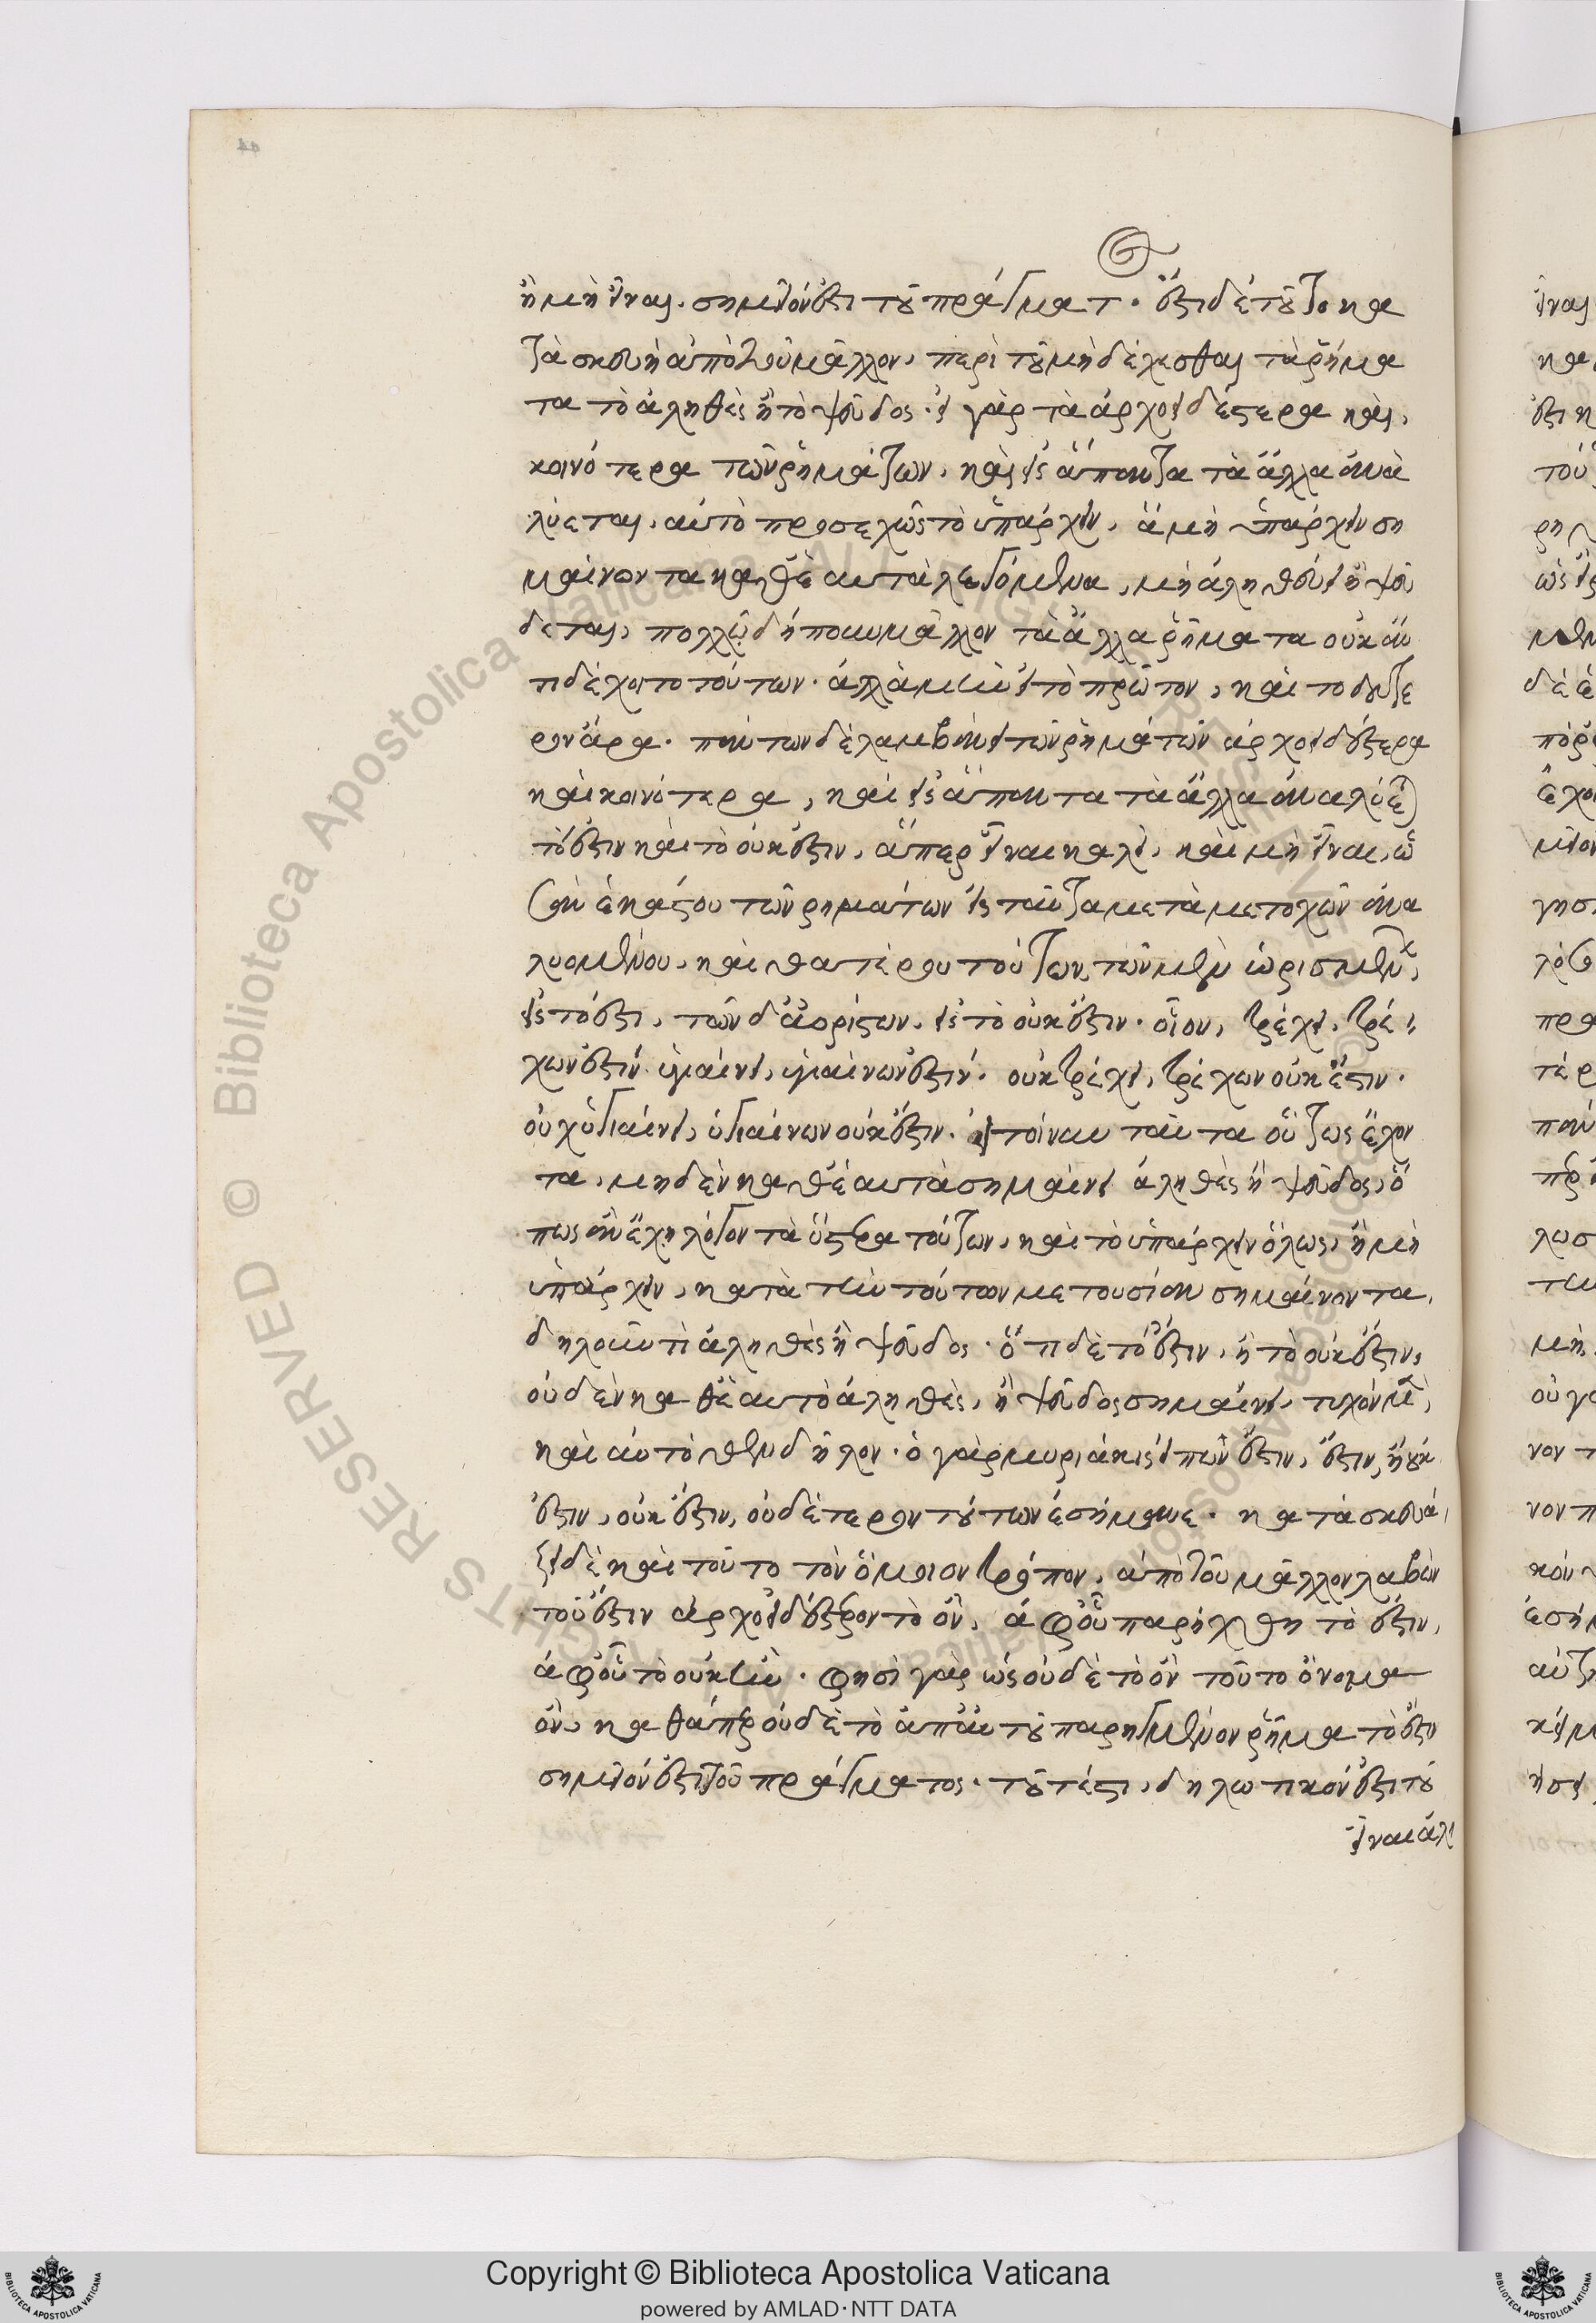 ἢ μὴ εἶναι. σημεῖόν ἐστι τοῦ πράγματ. ἔστι δὲ τοῦτο κα
τασκευὴ ἀπὸ τοῦ μᾶλλον, περὶ τοῦ μὴ δέχεσθαι τὰ ῥήμα
τα τὸ ἀληθὲς ἢ τὸ ψεῦδος. εἰ γὰρ τὰ ἀρχοειδέστερα καὶ,
κοινότερα τῶν ῥημάτων, καὶ εἰς ἃ πάντα τὰ ἄλλα ἀνα
λύεται, αὐτὸ προσεχῶς τὸ ὑπάρχειν, ἢ μὴ ὑπάρχειν ση
μαίνοντα καθ' ἑαυτὰ λεγόμενα, μὴ ἀληθεύει ἢ ψεύ
δεται, πολλῷ δήπου μᾶλλον τὰ ἄλλα ῥήματα οὐκ ἂν
τι δέχοιτο τούτων. ἀλλὰ μὴν εἰ τὸ πρῶτον, καὶ τὸ δεύτε
ρον ἄρα. πάντων δὲ λαμβάνει τῶν ῥημάτων ἀρχοειδέστερα
καὶ κοινότερα, καὶ εἰς ἃ πάντα τὰ ἄλλα ἀναλύεται
τὸ ἔστιν καὶ τὸ οὐκ ἔστιν, ἅπερ εἶναι καλεῖ, καὶ μὴ εἶναι, ὡ
σὰν ἑκάστου τῶν ῥημάτων εἰς ταῦτα μετὰ μετοχῶν ἀνα
λυομένου, καὶ θατέρου τούτων, τῶν μὲν ὡρισμένων,
εἰς τὸ ἔστι, τῶν δ' ἀορίστων, εἰς τὸ οὐκ ἔστιν. οἷον, τρέχει, τρέ
χων ἐστίν. ὑγιαίνει, ὑγιαίνων ἐστίν. οὐ τρέχει, τρέχων οὐκ ἔστιν.
οὐχ ὑγιαίνει, ὑγιαίνων οὐκ ἔστιν. εἰ τοίνυν ταῦτα οὕτως ἔχον
τα, μηδὲν καθ' ἑαυτὰ σημαίνει ἀληθὲς ἢ ψεῦδος, ὅ
πως ἂν ἔχῃ λόγον τὰ ὕστερα τούτων, καὶ τὸ ὑπάρχειν ὅλως, ἢ μὴ
ὑπάρχειν, κατὰ τὴν τούτων μετουσίαν σημαίνοντα,
δηλοῦν τὶ ἀληθὲς ἢ ψεῦδος. ὅτι δὲ τὸ ἔστιν, ἢ τὸ οὐκ ἔστιν,
οὐδὲν καθ' ἑαυτὸ ἀληθὲς, ἢ ψεῦδος σημαίνει, τυχὸν μὲν,
καὶ αὐτόθεν δῆλον. ὁ γὰρ μυριάκις εἰπὼν ἔστιν, ἔστιν, ἢ οὐκ
ἔστιν, οὐκ ἔστιν, οὐδέτερον τούτων ἐσήμανε. κατασκευά
ζει δὲ καὶ τοῦτο τὸν ὅμοιον τρόπον, ἀπὸ τοῦ μᾶλλον λαβὼν
τοῦ ἔστιν ἀρχοειδέστερον τὸ ὂν, ἀφ' οὗ παρήχθη τὸ ἔστιν,
ἀφ' οὗ τὸ οὐκ ἦν. φησὶ γὰρ ὡς οὐδὲ τὸ ὂν τοῦτο ὄνομα
ὂν, καθάπερ οὐδὲ τὸ ἀπ' αὐτοῦ παρηγμένον ῥῆμα τὸ ἔστιν
σημεῖόν ἐστι τοῦ πράγματος. τουτέστι, δηλωτικόν ἐστι τοῦ
εἶναι ἀλη